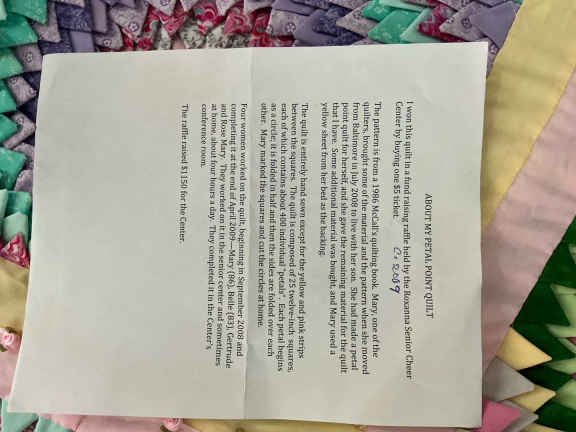 ABOUT MY PETAL POINT QUILT
I won this quilt in a fund raising raffle held by the Roxanna Senior Cheer
Center by buying one $5 ticket. C. 2009
The pattern is from a 1986 McCall's quilting book. Mary, one of the
quilters, bought some of the material and the pattern when she moved
from Baltimore in July 2008 to live with her son. She had made a petal
point quilt for herself, and she gave the remaining material for the quilt
that I have. Some additional material was bought, and Mary used a
yellow sheet from her bed as the backing.
The quilt is entirely hand sewn except for the yellow and pink strips
between the squares. The quilt is composed of 25 twelve-inch squares,
each of which contains about 400 individual "petals". Each petal begins
as a circle; it is folded in half and then the sides are folded over each
other. Mary marked the squares and cut the circles at home.
Four women worked on the quilt, beginning in September 2008 and
completing it at the end of April 2009—Mary (86), Belle (83), Gertrude
and Rose Mary. They worked on it in the senior center and sometimes
at home, about four hours a day. They completed it in the Center's
conference room.
The raffle raised $1150 for the Center.